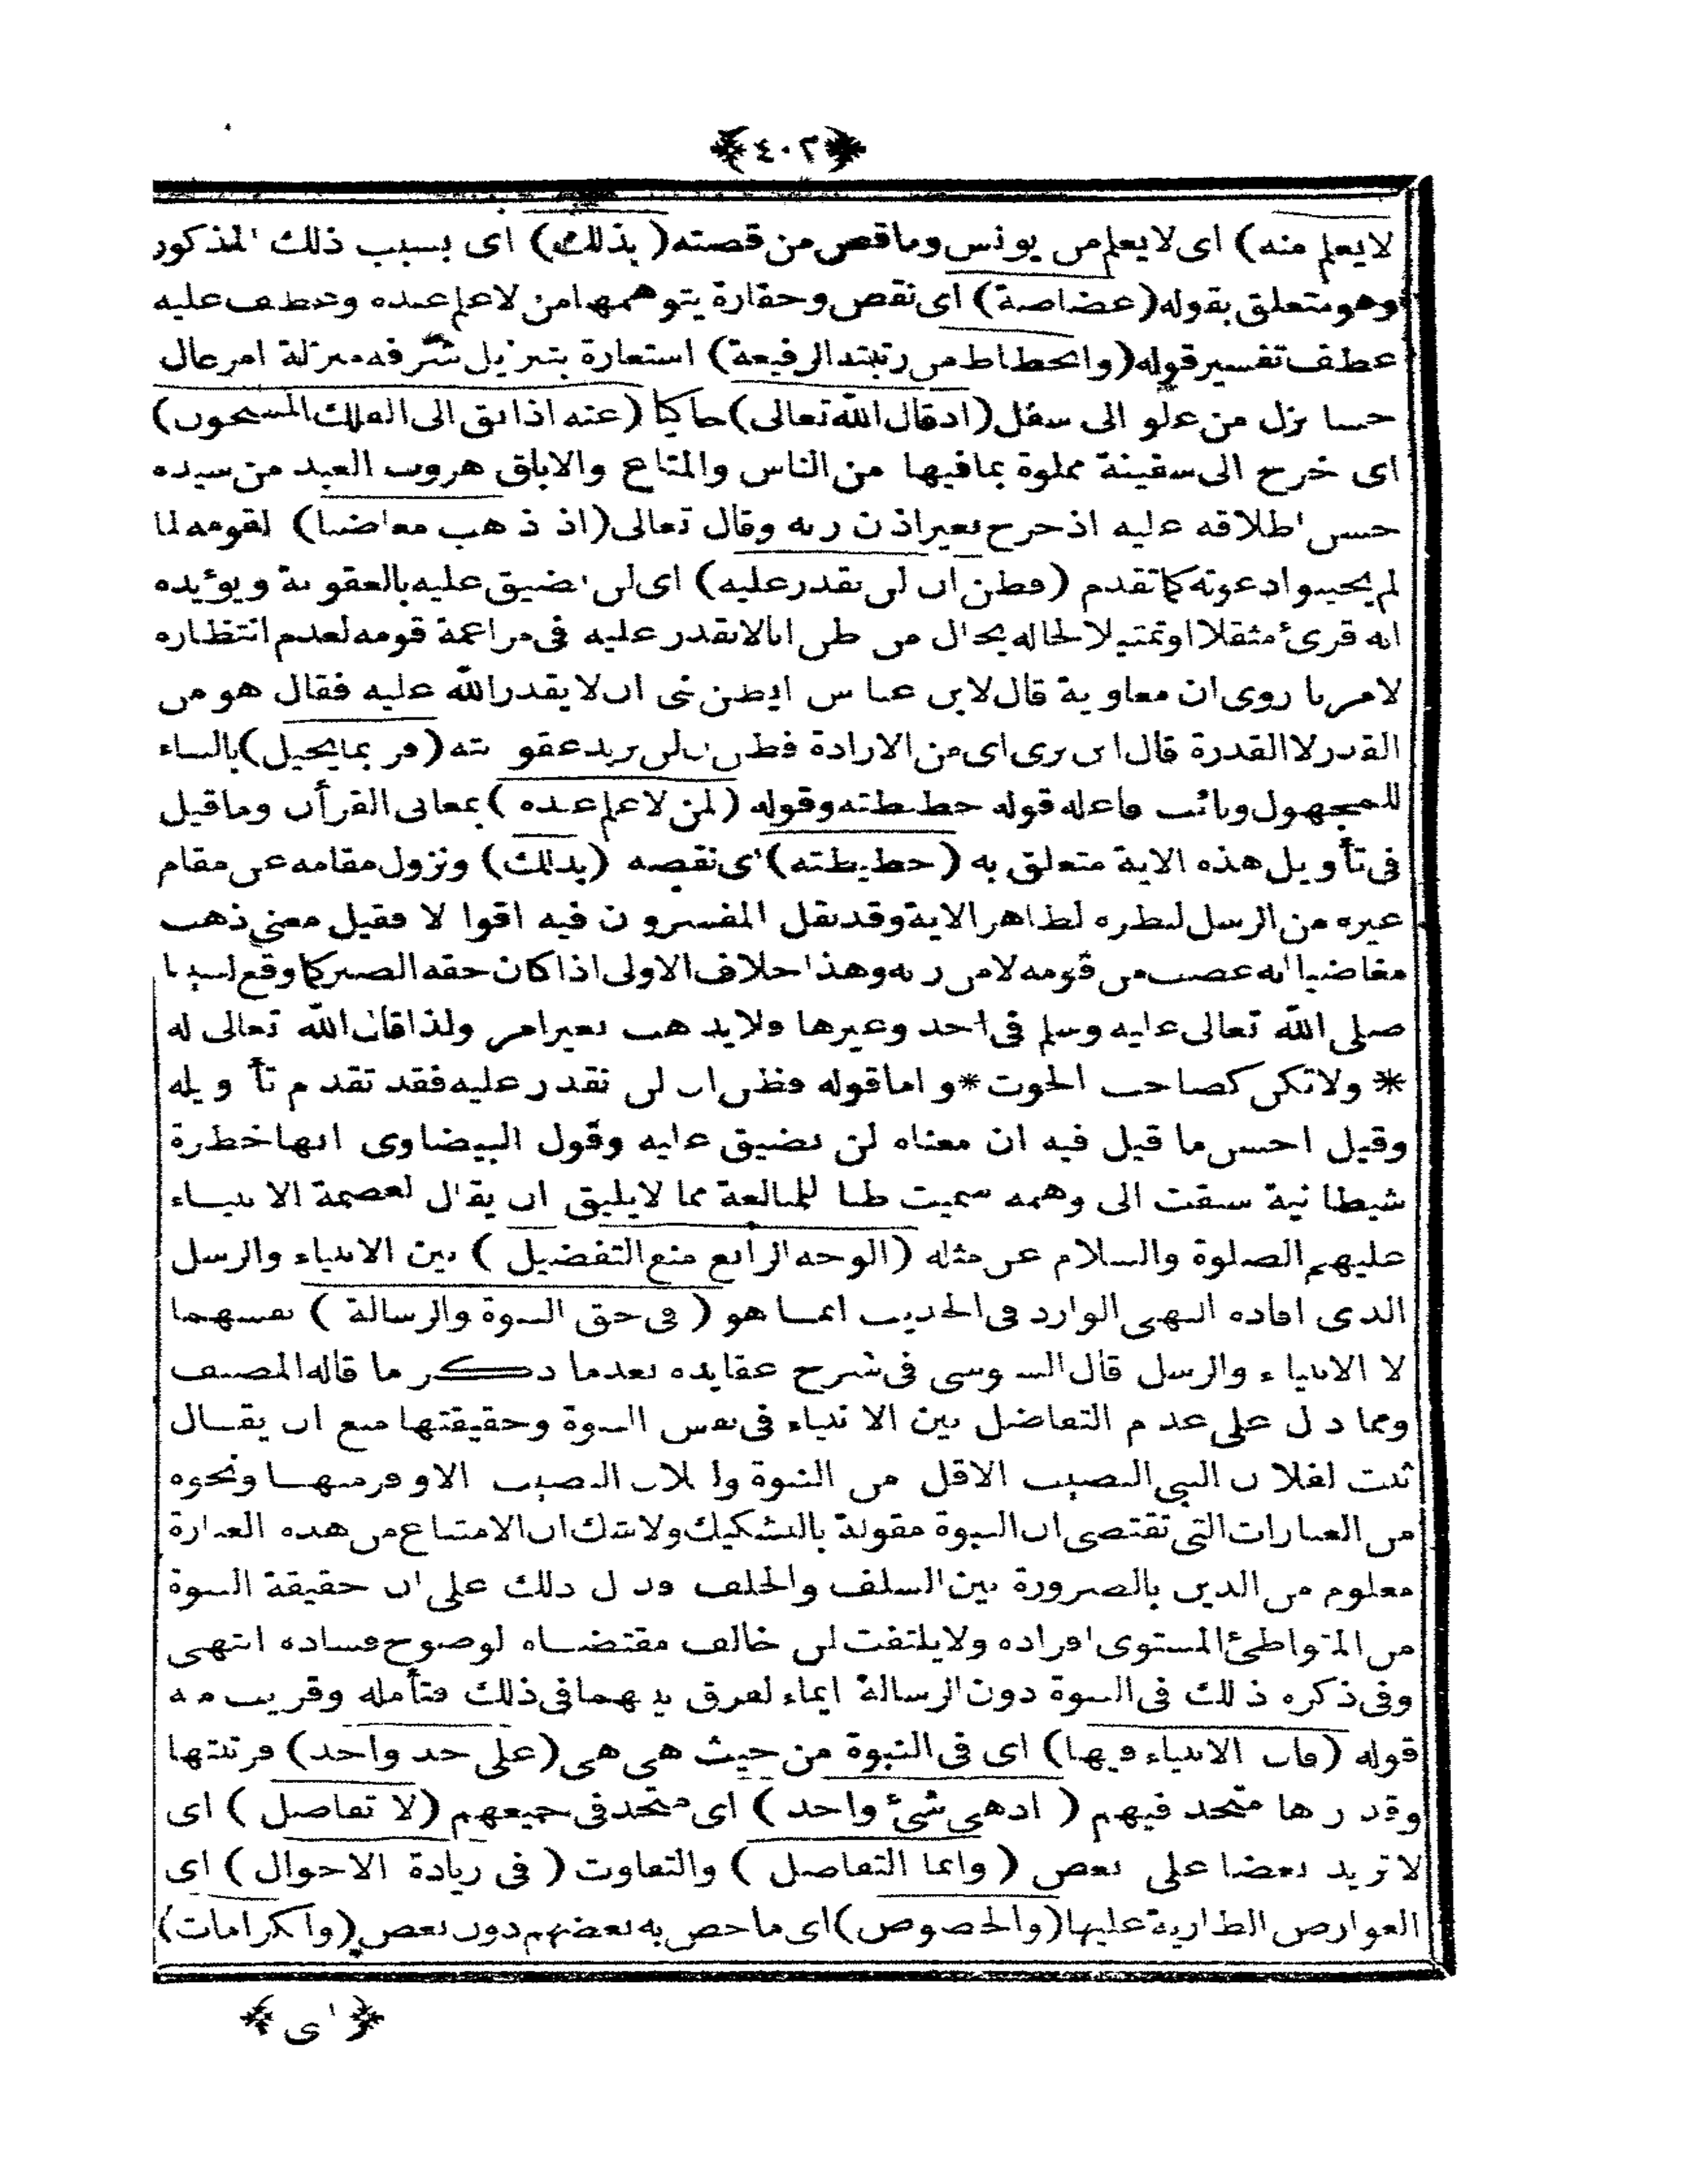 ﴿٤٠٢﴾
لا يعلم منه) اى لا يعلم من يونس وما قص من قصته (بذلك) اى بسبب ذلك المذكور
وهو متعلق بقوله (غضاضة) اى نقص وحقارة يتوهمها من لا علم عنده وعطف عليه
عطف تفسير قوله (وانحطاط من رتبته الرفيعة) استعارة بتنزيل شرفه منزلة امر عال
حسا نزل من علو الى سفل (اذ قال الله تعالى) حاكيا (عنه اذ ابق الى الفلك المشحون)
اى خرج الى سفينة مملوة بما فيها من الناس والمتاع والاباق هروب العبد من سيده
حسن اطلاقه عليه اذ خرج بغير اذن ربه وقال تعالى (اذ ذهب مغاضبا) لقومه لما
لم يجيبوا دعوته كما تقدم (فظن ان لن نقدر عليه) اى لن نضيق عليه بالعقوبة ويؤيده
انه قرئ مثقلا او تمثيلا لحاله بحال من ظن انا لا نقدر عليه فى مراغمة قومه لعدم انتظاره
لامرنا روى ان معاوية قال لابن عباس ايظن نبى ان لا يقدر الله عليه فقال هو من
القدر لا القدرة قال ابن برى اى من الارادة فظن ان لن نريد عقوبته (فربما يخيل) بالبناء
للمجهول ونائب فاعله قوله حطيطته وقوله (لمن لا علم عنده) بمعانى القرأن وما قيل
فى تأويل هذه الاية متعلق به (حطيطته) اى نقصه (بذلك) ونزول مقامه عن مقام
غيره من الرسل لنظره لظاهر الاية وقد نقل المفسرون فيه اقوالا فقيل معنى ذهب
مغاضبا انه غضب من قومه لا من ربه وهذا خلاف الاولى اذا كان حقه الصبر كما وقع لنبينا
صلى الله تعالى عليه وسلم فى احد وغيرها ولا يذهب بغير امر ولذا قال الله تعالى له
* ولا تكن كصاحب الحوت * واما قوله فظن ان لن نقدر عليه فقد تقدم تأويله
وقيل احسن ما قيل فيه ان معناه لن نضيق عليه وقول البيضاوى انها خطرة
شيطانية سبقت الى وهمه سميت ظنا للمبالغة مما لا يليق ان يقال لعصمة الانبياء
عليهم الصلوة والسلام عن مثله (الوجه الرابع منع التفضيل) بين الانبياء والرسل
الذى افاده النهى الوارد فى الحديث انما هو (فى حق النبوة والرسالة) نفسهما
لا الانبياء والرسل قال السنوسى فى شرح عقايده بعد ما ذكر ما قاله المصنف
ومما دل على عدم التفاضل بين الانبياء فى نفس النبوة وحقيقتها منع ان يقال
ثبت لفلان النبى النصيب الاقل من النبوة ولفلان النصيب الاوفر منها ونحوه
من العبارات التى تقتضى ان النبوة مقولة بالتشكيك ولا شك ان الامتناع من هذه العبارة
معلوم من الدين بالضرورة بين السلف والخلف فدل ذلك على ان حقيقة النبوة
من المتواطئ المستوى افراده ولا يلتفت لمن خالف مقتضاه لوضوح فساده انتهى
وفى ذكره ذلك فى النبوة دون الرسالة ايماء لفرق بينهما فى ذلك فتأمله وقريب منه
قوله (فان الانبياء فيها) اى فى النبوة من حيث هى هى (على حد واحد) فرتبتها
وقدرها متحد فيهم (اذ هى شئ واحد) اى متحد فى جميعهم (لا تفاضل) اى
لا تزيد بعضا على بعض (وانما التفاضل) والتفاوت (فى زيادة الاحوال) اى
العوارض الطارية عليها (والخصوص) اى ما خص به بعضهم دون بعض (والكرامات)
﴿اى﴾